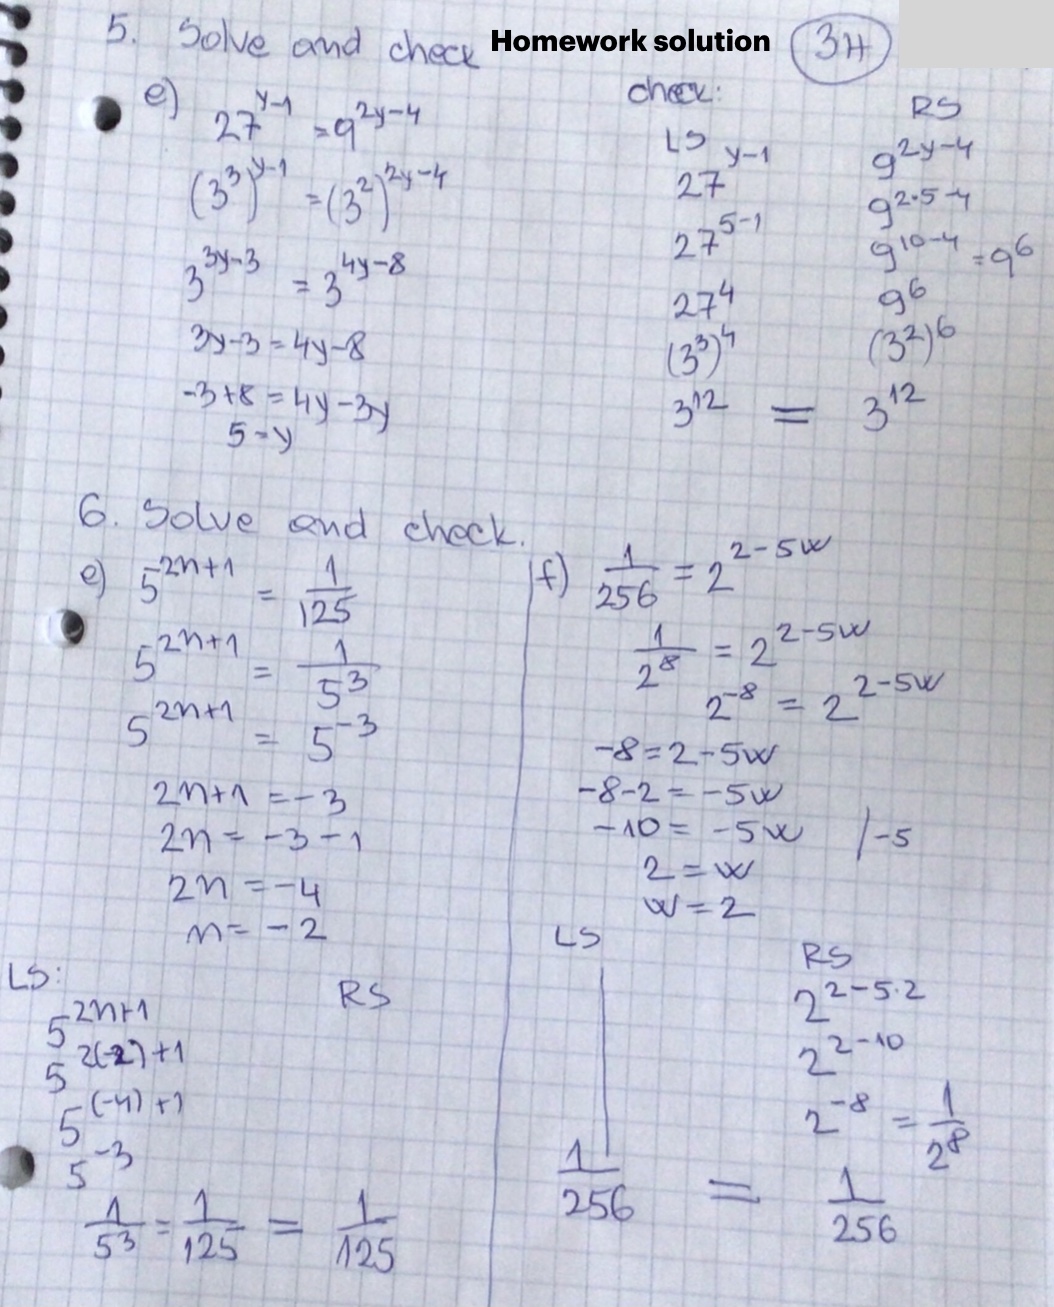 5. Solve and check Homework solution 3H
e) 27^{y-1} = 9^{2y-4}
(3^3)^{y-1} = (3^2)^{2y-4}
3^{3y-3} = 3^{4y-8}
3y-3 = 4y-8
-3+8 = 4y-3y
5 = y
check:
LS
27^{y-1}
27^{5-1}
27^4
(3^3)^4
3^{12} =
RS
9^{2y-4}
9^{2·5-4}
9^{10-4} = 9^6
9^6
(3^2)^6
3^{12}
6. Solve and check.
e) 5^{2n+1} = 1/125
5^{2n+1} = 1/5^3
5^{2n+1} = 5^{-3}
2n+1 = -3
2n = -3-1
2n = -4
n = -2
LS:
5^{2n+1}
5^{2(-2)+1}
5^{(-4)+1}
5^{-3}
1/5^3 = 1/125 =
RS
1/125
f) 1/256 = 2^{2-5w}
1/2^8 = 2^{2-5w}
2^{-8} = 2^{2-5w}
-8 = 2-5w
-8-2 = -5w
-10 = -5w /-5
2 = w
w = 2
LS
1/256 =
RS
2^{2-5·2}
2^{2-10}
2^{-8} = 1/2^8
1/256